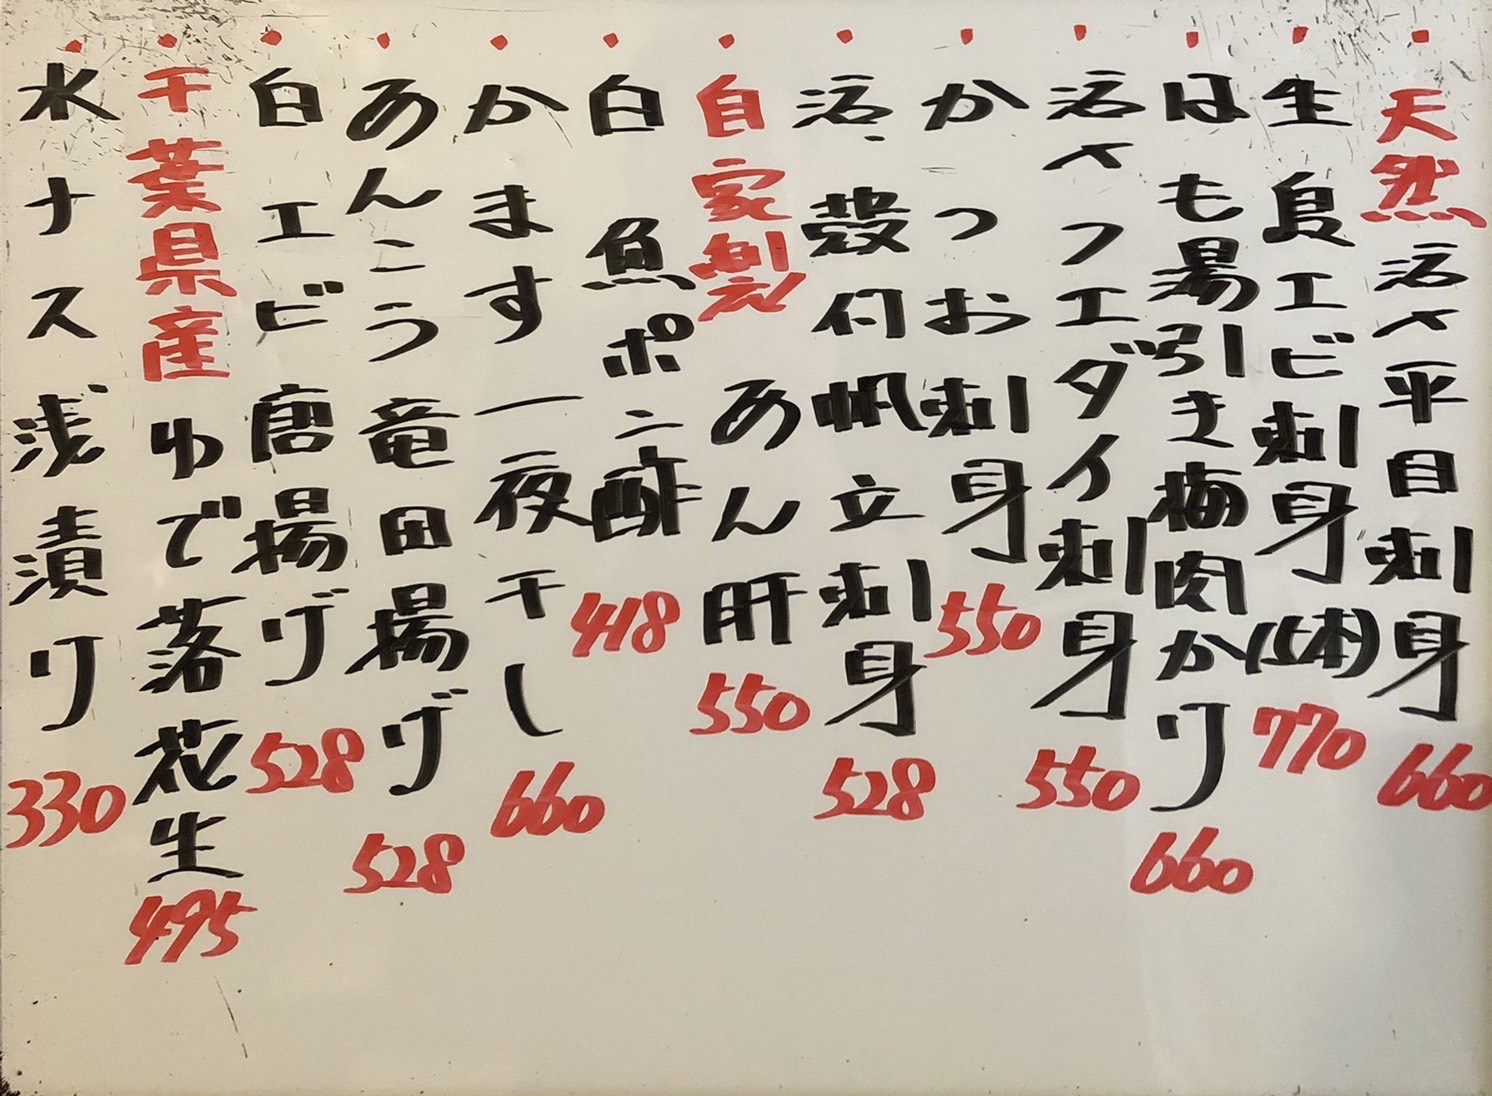 天然活〆平目刺身 660
生島エビ刺身(5本) 770
はも湯引き梅肉かけ 660
活〆フエダイ刺身 550
かつお刺身 550
活、殻付帆立刺身 528
自家製 あん肝 550
白魚ポン酢 418
かます一夜干し 660
あんこう竜田揚げ 528
白エビ唐揚げ 528
千葉県産ゆで落花生 495
水ナス浅漬け 330